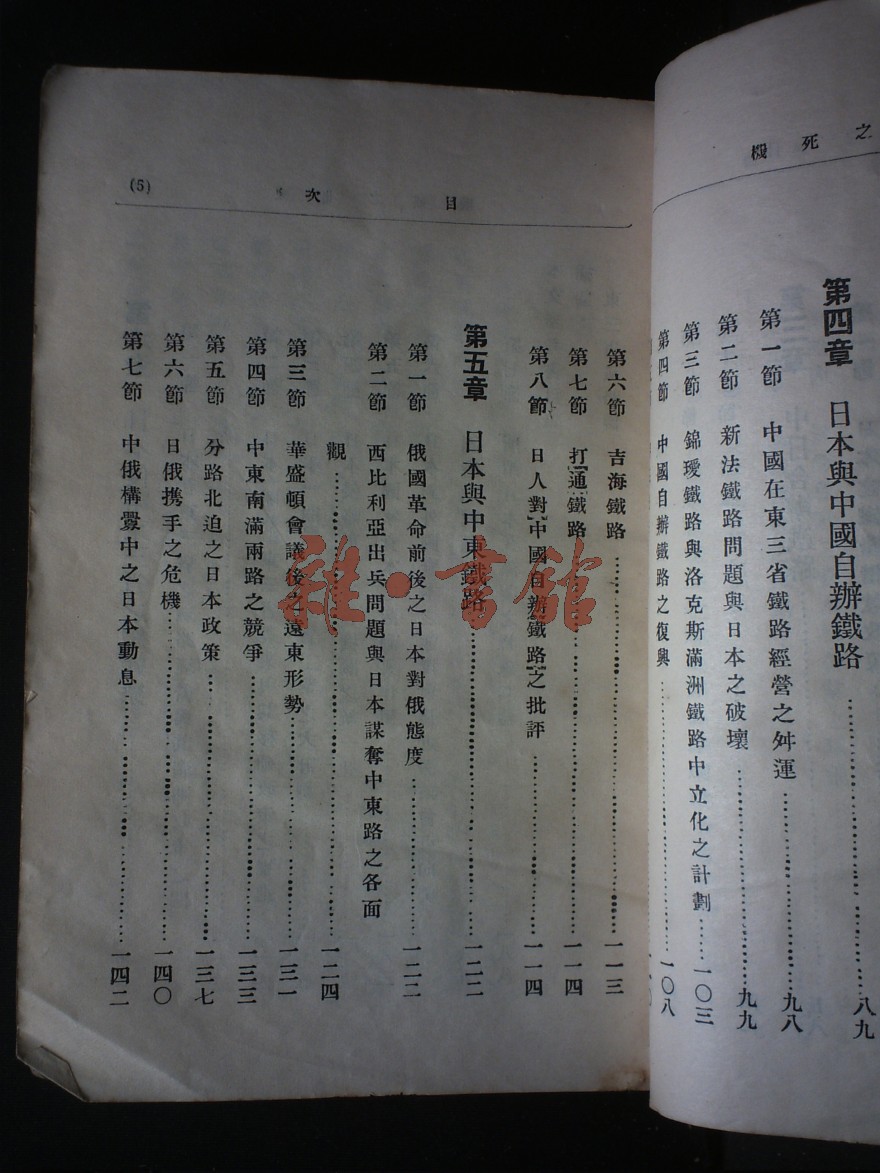 之死機
第四章　日本與中國自辦鐵路……八九
第一節　中國在東三省鐵路經營之舛運……九八
第二節　新法鐵路問題與日本之破壞……九九
第三節　錦璦鐵路與洛克斯滿洲鐵路中立化之計劃……一〇三
第四節　中國自辦鐵路之復興……一〇八
目次
(5)
第六節　吉海鐵路……一一三
第七節　打通鐵路……一一四
第八節　日人對中國自辦鐵路之批評……一一四
第五章　日本與中東鐵路……一二二
第一節　俄國革命前後之日本對俄態度……一二二
第二節　西比利亞出兵問題與日本謀奪中東路之各面
觀……一二四
第三節　華盛頓會議後之遠東形勢……一三一
第四節　中東南滿兩路之競爭……一三三
第五節　分路北迫之日本政策……一三七
第六節　日俄携手之危機……一四〇
第七節　中俄構釁中之日本動息……一四二
雜·書館